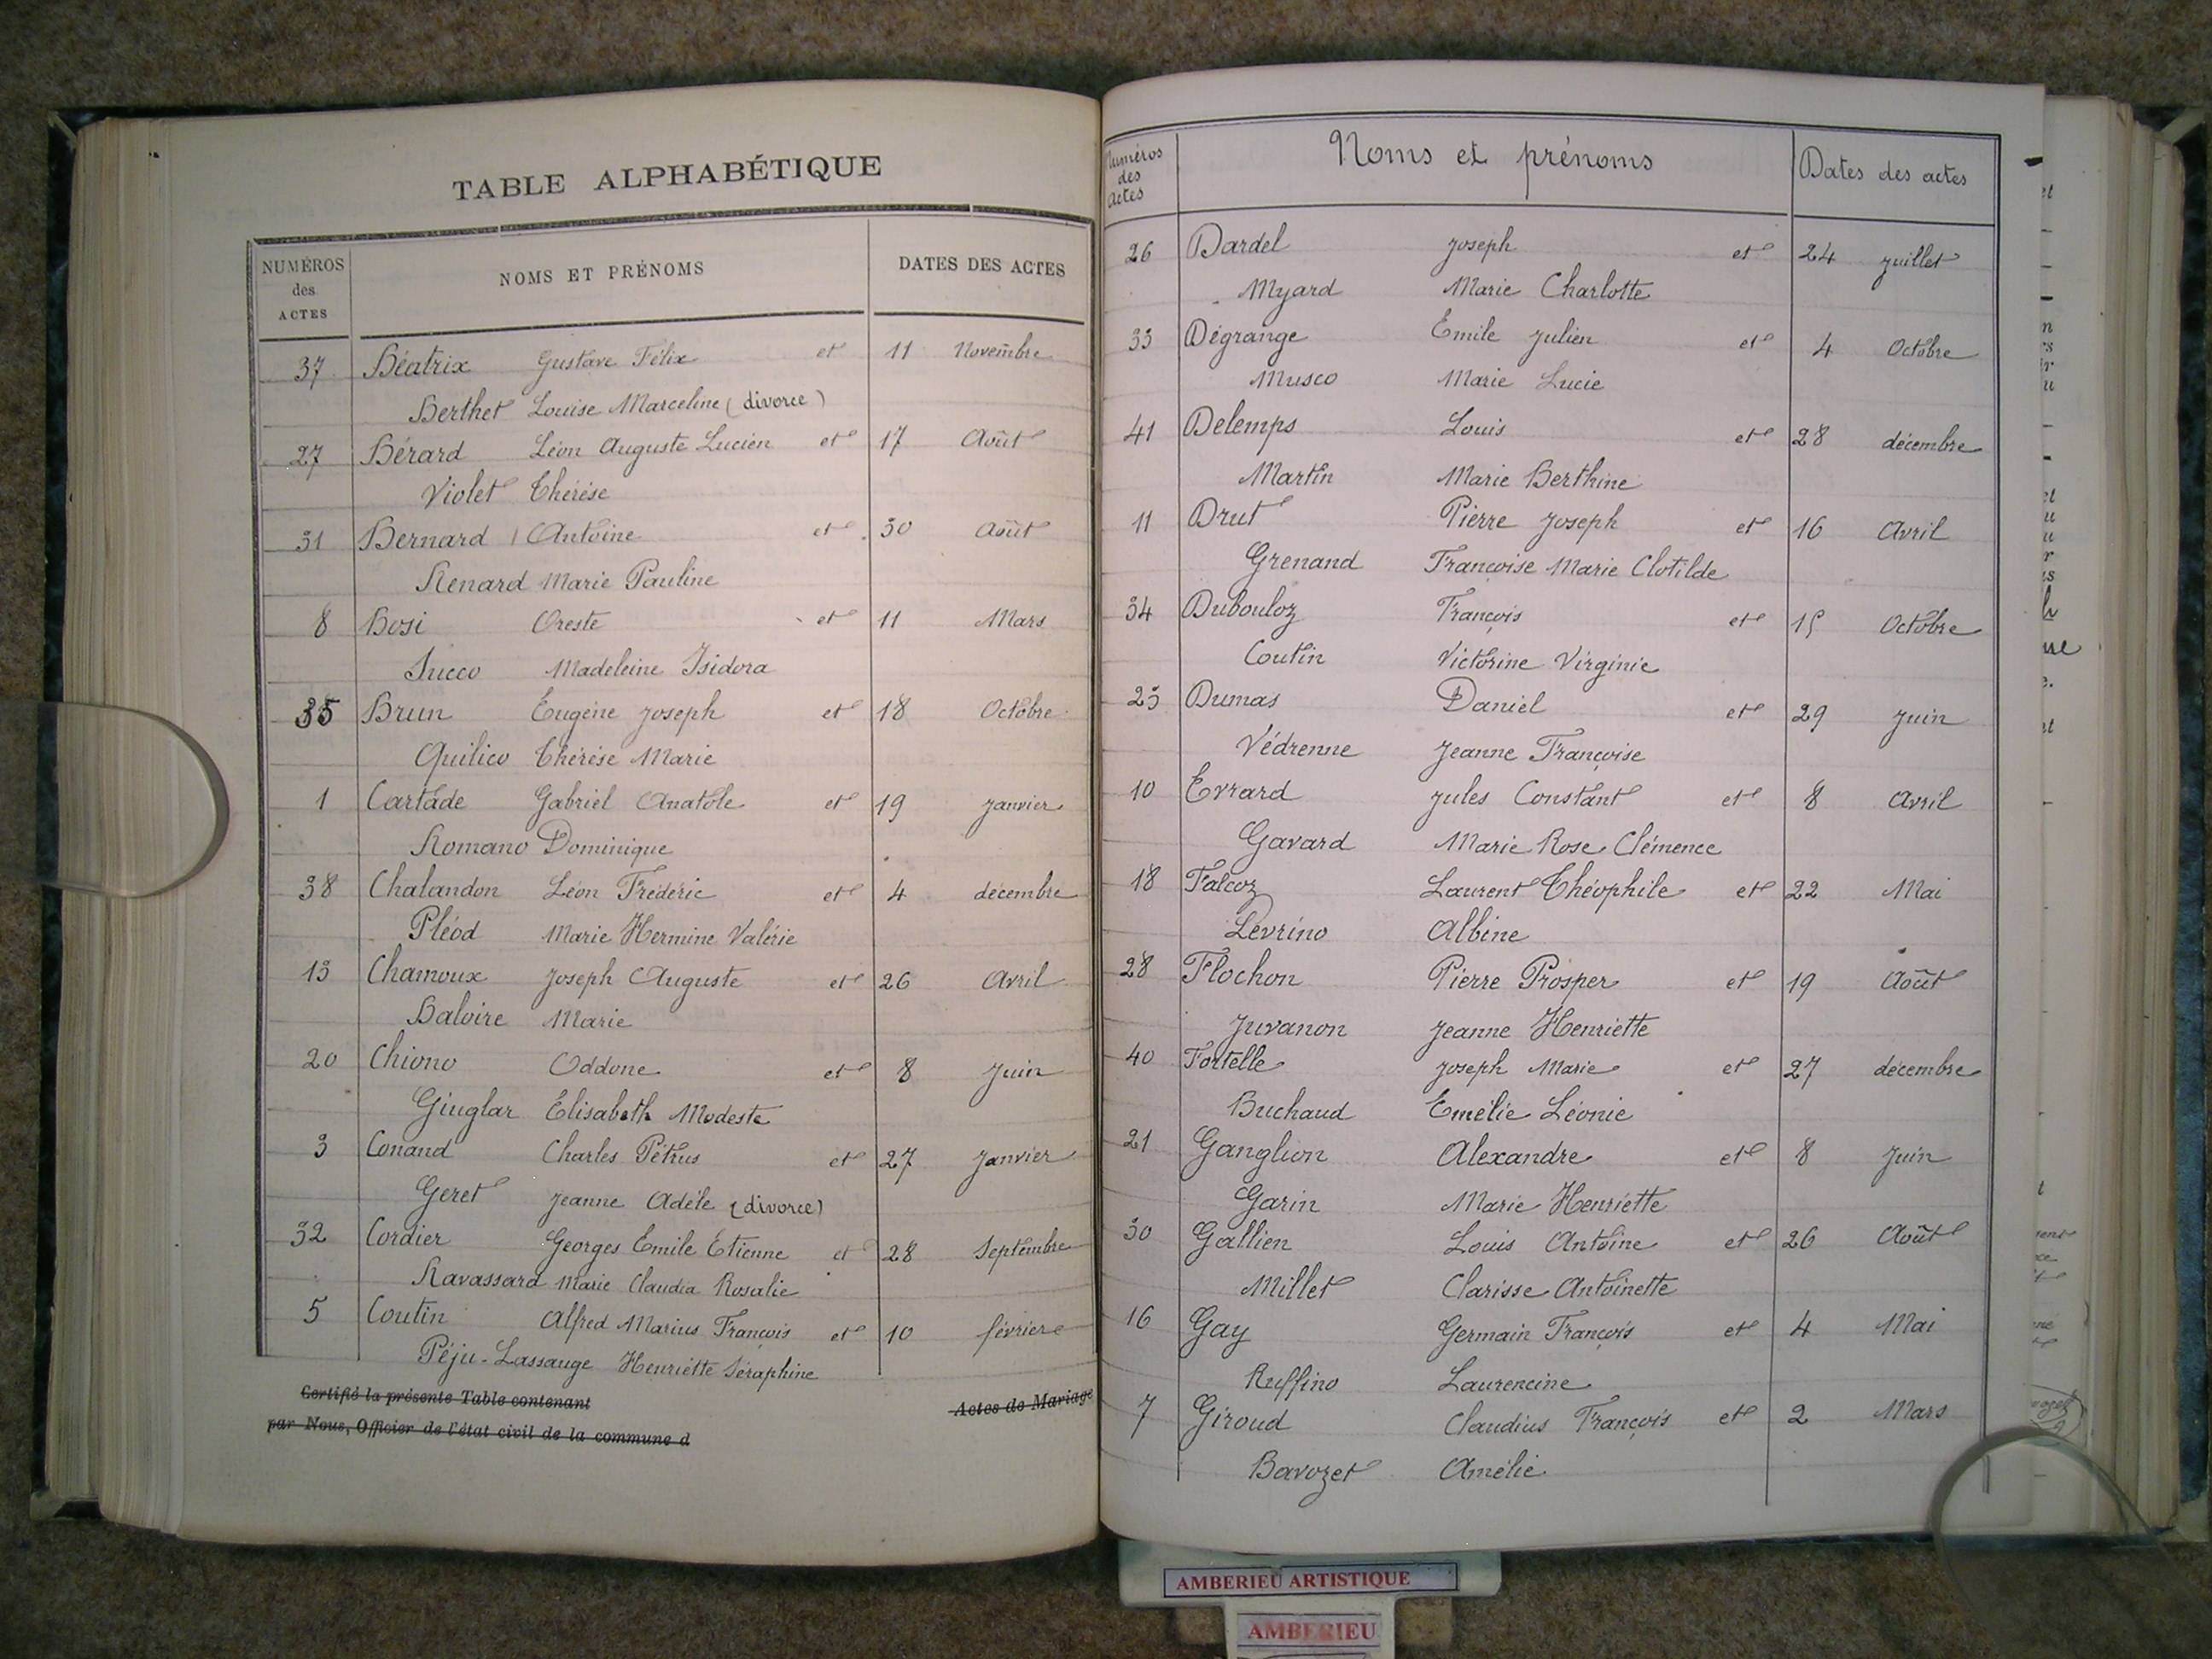 TABLE ALPHABÉTIQUE
NUMÉROS des ACTES NOMS ET PRÉNOMS DATES DES ACTES
37 Béatrix Gustave Félix et 11 Novembre
Berthet Louise Marceline (divorce)
27 Bérard Léon Auguste Lucien et 17 Août
Violet Thérèse
31 Bernard Antoine et 30 Août
Renard Marie Pauline
8 Bosi Oreste et 11 Mars
Succo Madeleine Isidora
35 Brun Eugène Joseph et 18 Octobre
Quilico Thérèse Marie
1 Cartade Gabriel Anatole et 19 Janvier
Romano Dominique
38 Chalandon Léon Frédéric et 4 décembre
Pléod Marie Hermine Valérie
13 Chamoux Joseph Auguste et 26 Avril
Baloire Marie
20 Chiono Oddone et 8 Juin
Giuglar Elisabeth Modeste
3 Conand Charles Pétrus et 27 Janvier
Geret Jeanne Adèle (divorce)
32 Cordier Georges Emile Étienne et 28 Septembre
Ravassard Marie Claudia Rosalie
5 Coutin Alfred Marius François et 10 février
Péju-Lassauge Henriette Séraphine
Certifié la présente Table contenant Actes de Mariage
par Nous, Officier de l'état civil de la commune d
Numéros des Actes Noms et prénoms Dates des actes
26 Dardel Joseph et 24 Juillet
Myard Marie Charlotte
33 Dégrange Emile Julien et 4 Octobre
Musco Marie Lucie
41 Delemps Louis et 28 décembre
Martin Marie Berthine
11 Drut Pierre Joseph et 16 Avril
Grenand Françoise Marie Clotilde
34 Dubouloz François et 15 Octobre
Coutin Victorine Virginie
25 Dumas Daniel et 29 Juin
Védrenne Jeanne Françoise
10 Evrard Jules Constant et 8 Avril
Gavard Marie Rose Clémence
18 Falcoz Laurent Théophile et 22 Mai
Levrino Albine
28 Flochon Pierre Prosper et 19 Août
Juvanon Jeanne Henriette
40 Fortelle Joseph Marie et 27 décembre
Buchaud Emélie Léonie
21 Ganglion Alexandre et 8 Juin
Garin Marie Henriette
30 Gallien Louis Antoine et 26 Août
Millet Clarisse Antoinette
16 Gay Germain François et 4 Mai
Ruffino Laurencine
7 Giroud Claudius François et 2 Mars
Bavozet Amélie
AMBERIEU ARTISTIQUE
AMBERIEU